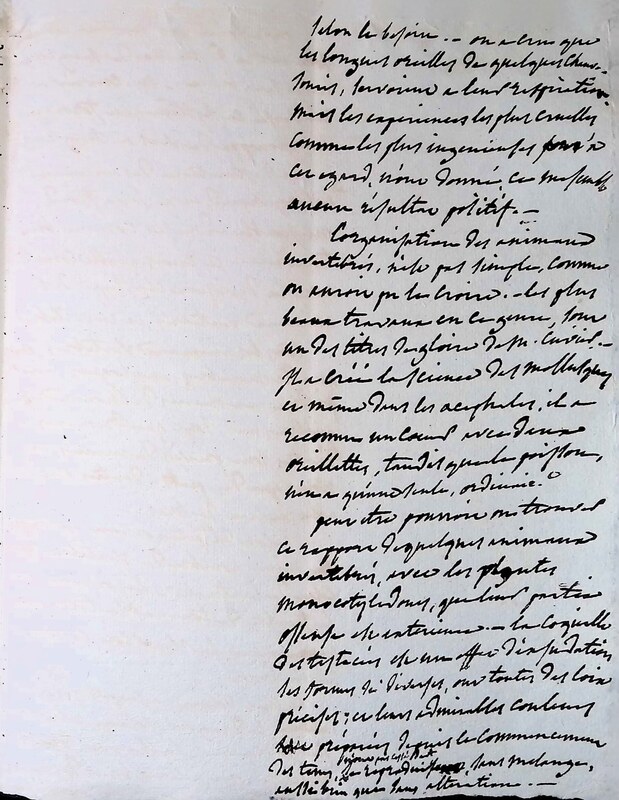 selon le besoin. — on a cru que
les longues oreilles de quelques chauv-
souris, servoient a leur respiration
mais les experiences les plus cruelles
comme les plus ingenieuses à
cet egard, n'ont donné, ce me semble
aucun résultat positif. —
L'organisation des animaux
invertebrés, n'est pas simple, comme
on auroit pu le croire. — les plus
beaux travaux en ce genre, sont
un des titres de gloire de M. Cuvier. —
il a créé la science des mollusques
et même dans les acephales, il a
reconnu un cœur avec deux
oreillettes, tandis que le poisson,
n'en a qu'une seule, ordinair.e
peut etre pourroit on trouver
ce rapport de quelques animaux
invertebrés, avec les plantes
monocotyledones, que leur partie
osseuse est exterieure. — la coquille
des testacés est un effet d'exsudation
les formes si diverses, ont toutes des loix
précises; et leurs admirables couleurs
préparées depuis le commencement
des tems, se reproduisent, sans melange,
aussi bien que sans alteration. —